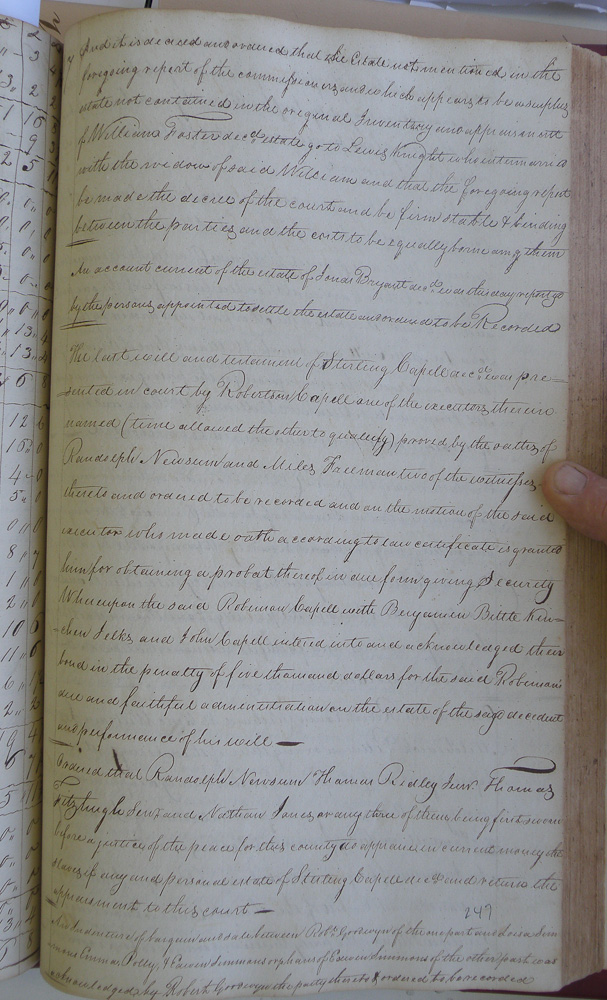 And it is decreed and ordered that the Estate not mentioned in the
foregoing report of the commissioners, and which appears to be a surplus
estate not contained in the original Inventory and appraisement
of William Foster decd. estate go to Lewis Knight who intermarried
with the widow of said William and that the foregoing report
be made the decree of the court and be firm stable & binding
between the parties and the costs to be equally borne among them
An account current of the estate of Jonas Bryant decd. was this day reported
by the persons appointed to settle the estate and ordered to be Recorded
The last will and testament of Sterling Capell decd. was pre=
=sented in court by Robertson Capell one of the executors therein
named (time allowed the other to qualify) proved by the oaths of
Randolph Newsum and Miles Freeman two of the witnesses
thereto and ordered to be recorded and on the motion of the said
executor who made oath according to law certificate is granted
him for obtaining a probat thereof in due form giving Security
Whereupon the said Robinson Capell with Benjamin Bittle
Jelks and John Capell entered into and acknowledged their
bond in the penalty of five thousand dollars for the said Robinson's
due and faithful administration on the estate of the said decedent
and performance of his will
Ordered that Randolph Newsum Thomas Ridley Junr. Thomas
Fitzhugh Senr. and Nathan Jones, or any three of them being first sworn
before a justice of the peace for this county do appraise in current money the
slaves if any and personal estate of Sterling Capell decd. and return the
appraisment to this court
249
An Indenture of bargain and sale between Robt. Goodwyn of the one part and
Emma, Polly, & Edwin Simmons orphans of Edwin Simmons of the other part was
acknowledged by Robert Goodwyn the party thereto & ordered to be recorded